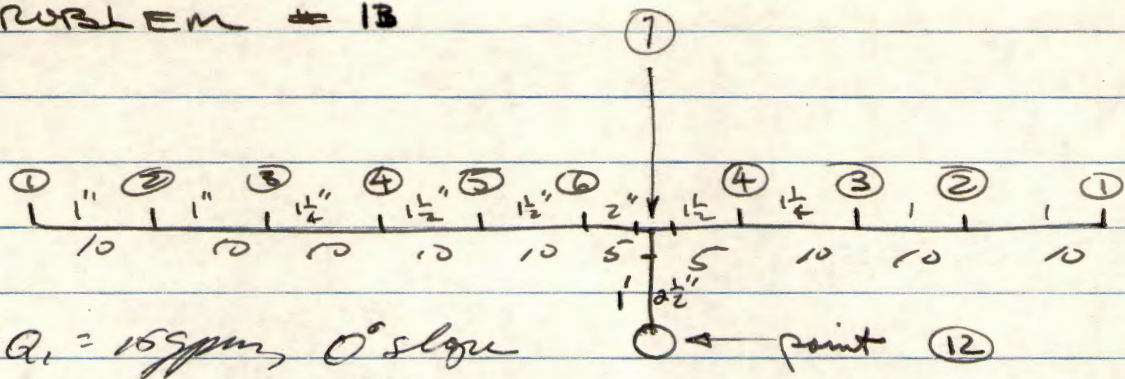 ROBLEM # 1B
⑦
① ② ③ ④ ⑤ ⑥ ④ ③ ② ①
1" 1" 1¼" 1½" 1½" 2" 1½ 1¼ 1 1
10 10 10 10 10 5 5 10 10 10
1' 2½"
Q₁ = 15gpm, 0° slope point ⑫